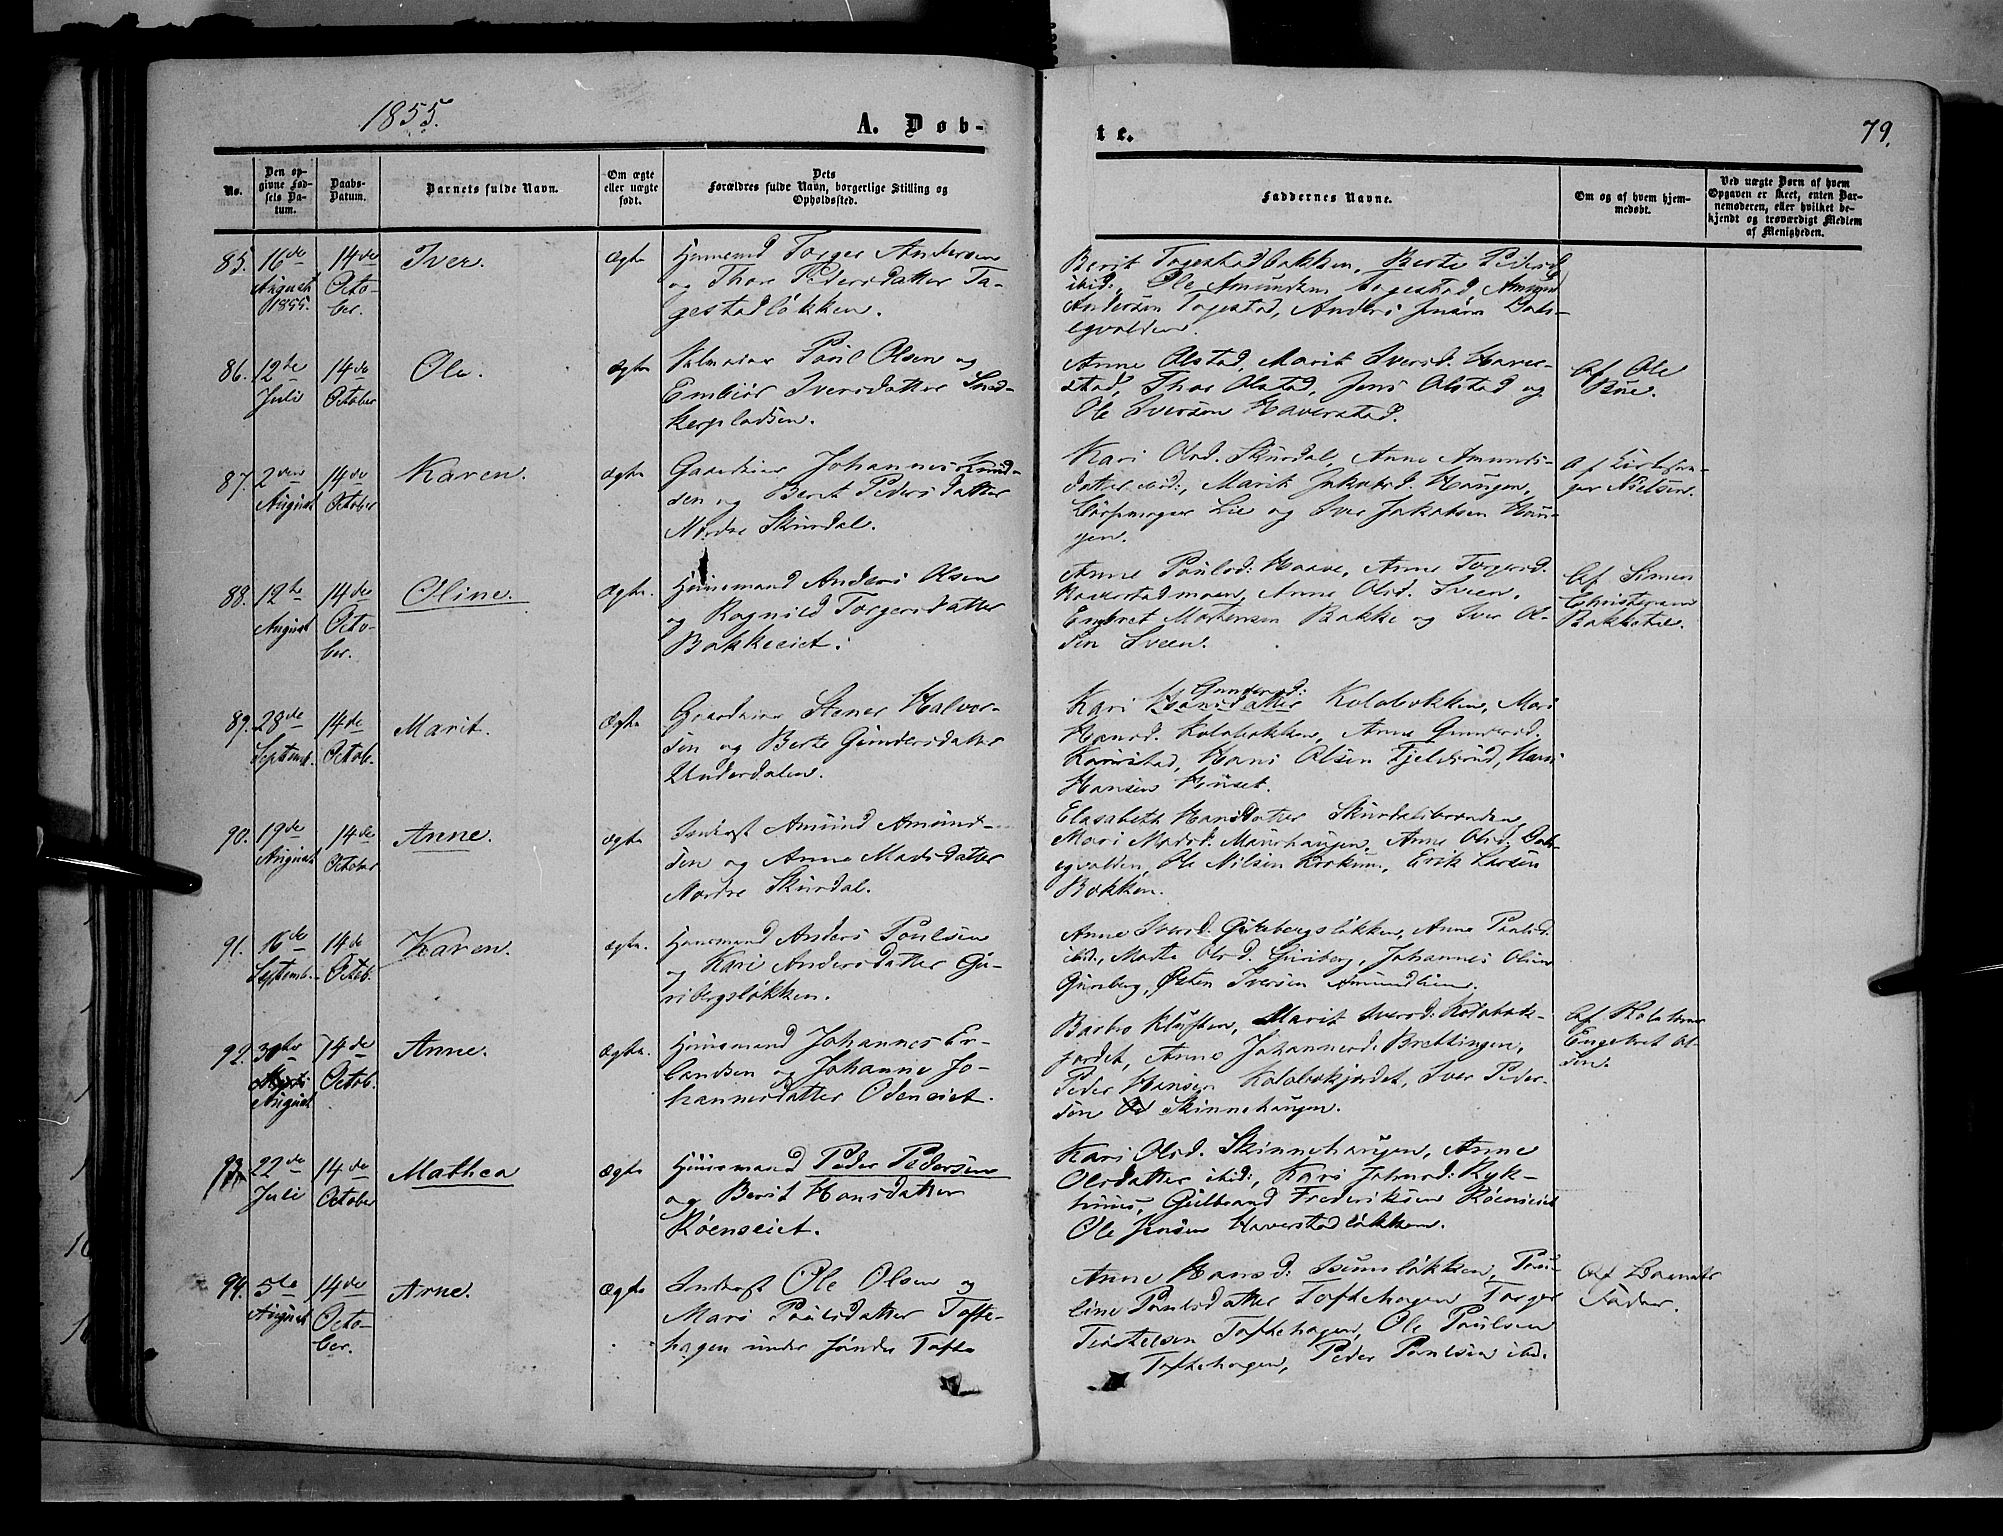 1855.
A. Døb-
te.
79.
No.
Den op-
givne Fød-
sels Da-
tum.
Daabs-
Datum.
Barnets fulde Navn.
Om ægte
eller uægte
født.
Dets
Forældres fulde Navn, borgerlige Stilling og
Opholdssted.
Faddernes Navne.
Om og af hvem hjem-
medøbt.
Ved uægte Børn af hvem
Opgaven er skeet, enten Bar-
nemoderen, eller hvilket be-
kjendt og troværdigt Medlem
af Menigheden.
85. 16de
August
1855.
14de
Octo-
ber.
Iver.
Ægte
Huusmand Torger Andersen
og Thore Pedersdatter To-
gestadløkken.
Berit Togestadbakken, Berte Pedersd.
ibid., Ole Amundsen Togestad, Amund
Andersen Togestad, Anders Jensen Dals-
egvolden.
86. 12te
Juli
14de
October
Ole.
Ægte
Poul Olsen og
Embiør Iversdatter Sned-
kerpladsen.
Anne Olstad, Marit Iversd. Haver-
stad, Thor Olstad, Jens Olstad og
Ole Iversen Haverstad.
Af Ole
Bue.
87. 2den
August
14de
October
Karen.
Ægte
Gaardeier Johannes Amund-
sen og Berit Pedersdatter
Nordre Skurdal.
Kari Olsd. Skurdal, Anne Amunds-
datter ibid., Marit Jakobsd. Haugen,
Lie og Iver Jakobsen Hau-
gen.
Af Kirkesan-
ger Nielsen.
88. 12te
August
14de
Octo-
ber.
Oline.
Ægte.
Huusmand Anders Olsen
og Ragnild Torgersdatter
Bakkeeiet.
Anne Poulsd. Haave, Anne Torgersd.
Haverstadmoen, Anne Olsd. Sveen,
Embret Mortensen Bakke og Iver Ol-
sen Sveen.
Af Simen
Christensen
Bakketa.
89. 28de
Septembr.
14de
Octob.
Marit.
Ægte
Gaardeier Stener Halvor-
sen og Berte Gundersdatter
Underdalen.
Gundersd.
Kari Hansdatter Kolobakken, Mari
Hansd. Kolobakken, Anne Gundersd.
Hans Olsen Hans
Hansen Huset.
90. 19de
August
14de
October
Anne.
Ægte
Inderst Amund Amund-
sen og Anne Madsdatter
Nordre Skurdal.
Elisabeth Hansdatter Skurdalsbranden,
Mari Madsd. Anne Olsd. Dals-
egvolden, Ole Nilsen Krokum, Erik Larsen
Bakken.
91. 16de
Septemb.
14de
Octob.
Karen.
Ægte.
Huusmand Anders Poulsen
og Kari Andersdatter Gu-
ribergsløkken.
Anne Iversd. Guribergsløkken, Anne Paulsd.
ibid., Marte Olsd. Guriberg, Johannes Olsen
Guriberg, Østen Iversen Amundlien.
92. 30te
August
14de
Octob.
Anne.
Ægte.
Huusmand Johannes Er-
landsen og Johanne Jo-
hannesdatter Odenseiet.
Barbro Kluften, Marit Iversd. Kolobok-
jordet, Anne Johannesd. Brettingen,
Peder Hansen Kolobokjordet, Iver Peder-
sen Skinnehaugen.
Af Skolelærer
Engebret Ol-
sen.
93. 22de
Juli
14de
October
Mathea
Ægte
Huusmand Peder Pedersen
og Berit Hansdatter
Røenseiet.
Kari Olsd. Skinnehaugen, Anne
Olsdatter ibid., Kari Johnsd. Ryk-
huus, Gulbrand Frederiksen Røenseiet
Ole Jensen Haverstadløkken.
94. 5te
August
14de
Octo-
ber.
Arne.
Ægte
Inderst Ole Olsen og
Mari Poulsdatter Tofte-
hagen under søndre Tofte
Anne Hansd. Isumløkken, Pau-
line Paulsdatter Toftehagen, Torger
Torstelsen Toftehagen, Ole Poulsen
Toftehagen, Peder Poulsen ibd.
Af Barnets
Fader.